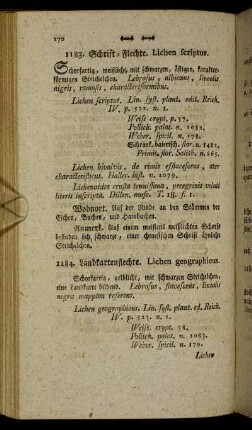 170
1183. Schrift-Flechte. Lichen scriptus.
Schorfartig, weißlicht, mit schwarzen, ästigen, karakter-
förmigen Strichelchen. Leprosus, albicans, lineolis
nigris, ramosis, characteriformibus.
Lichen scriptus. Lin. syst. plant. edit. Reich.
IV. p. 521. n. 1.
Weiss crypt. p. 37.
Pollich. palat. n. 1082.
Weber. spicil. n. 178.
Schrank. baierisch. flor. n. 1481.
Primit. flor. Salisb. n.
Lichen
characteristicus. Haller. hist. n. 2079.
Lichenoides crusta tenuissima, peregrinis veluti
literis inscripta. Dillen. musc. T. 18. f. 1.
Wohnort. Auf der Rinde an den Stämmen der
Eichen, Buchen, und Hainbuchen.
Anmerk. Auf einem meistens weißlichten Schorfe
befinden sich schwarze, einer chinesischen Schrift ähnliche
Strichelchen.
1184. Landkartenflechte. Lichen geographicus.
Schorfartig, gelblicht, mit schwarzen Strichelchen,
eine Landkarte bildend. Leprosus, flavescens, lineolis
nigris mappam referens.
Lichen geographicus. Lin. syst. plant. ed. Reich.
IV. p. 521. n. 2.
Weiss. crypt. 38.
Pollich. palat. n. 1083.
Weber. spicil. n. 179.
Lichen